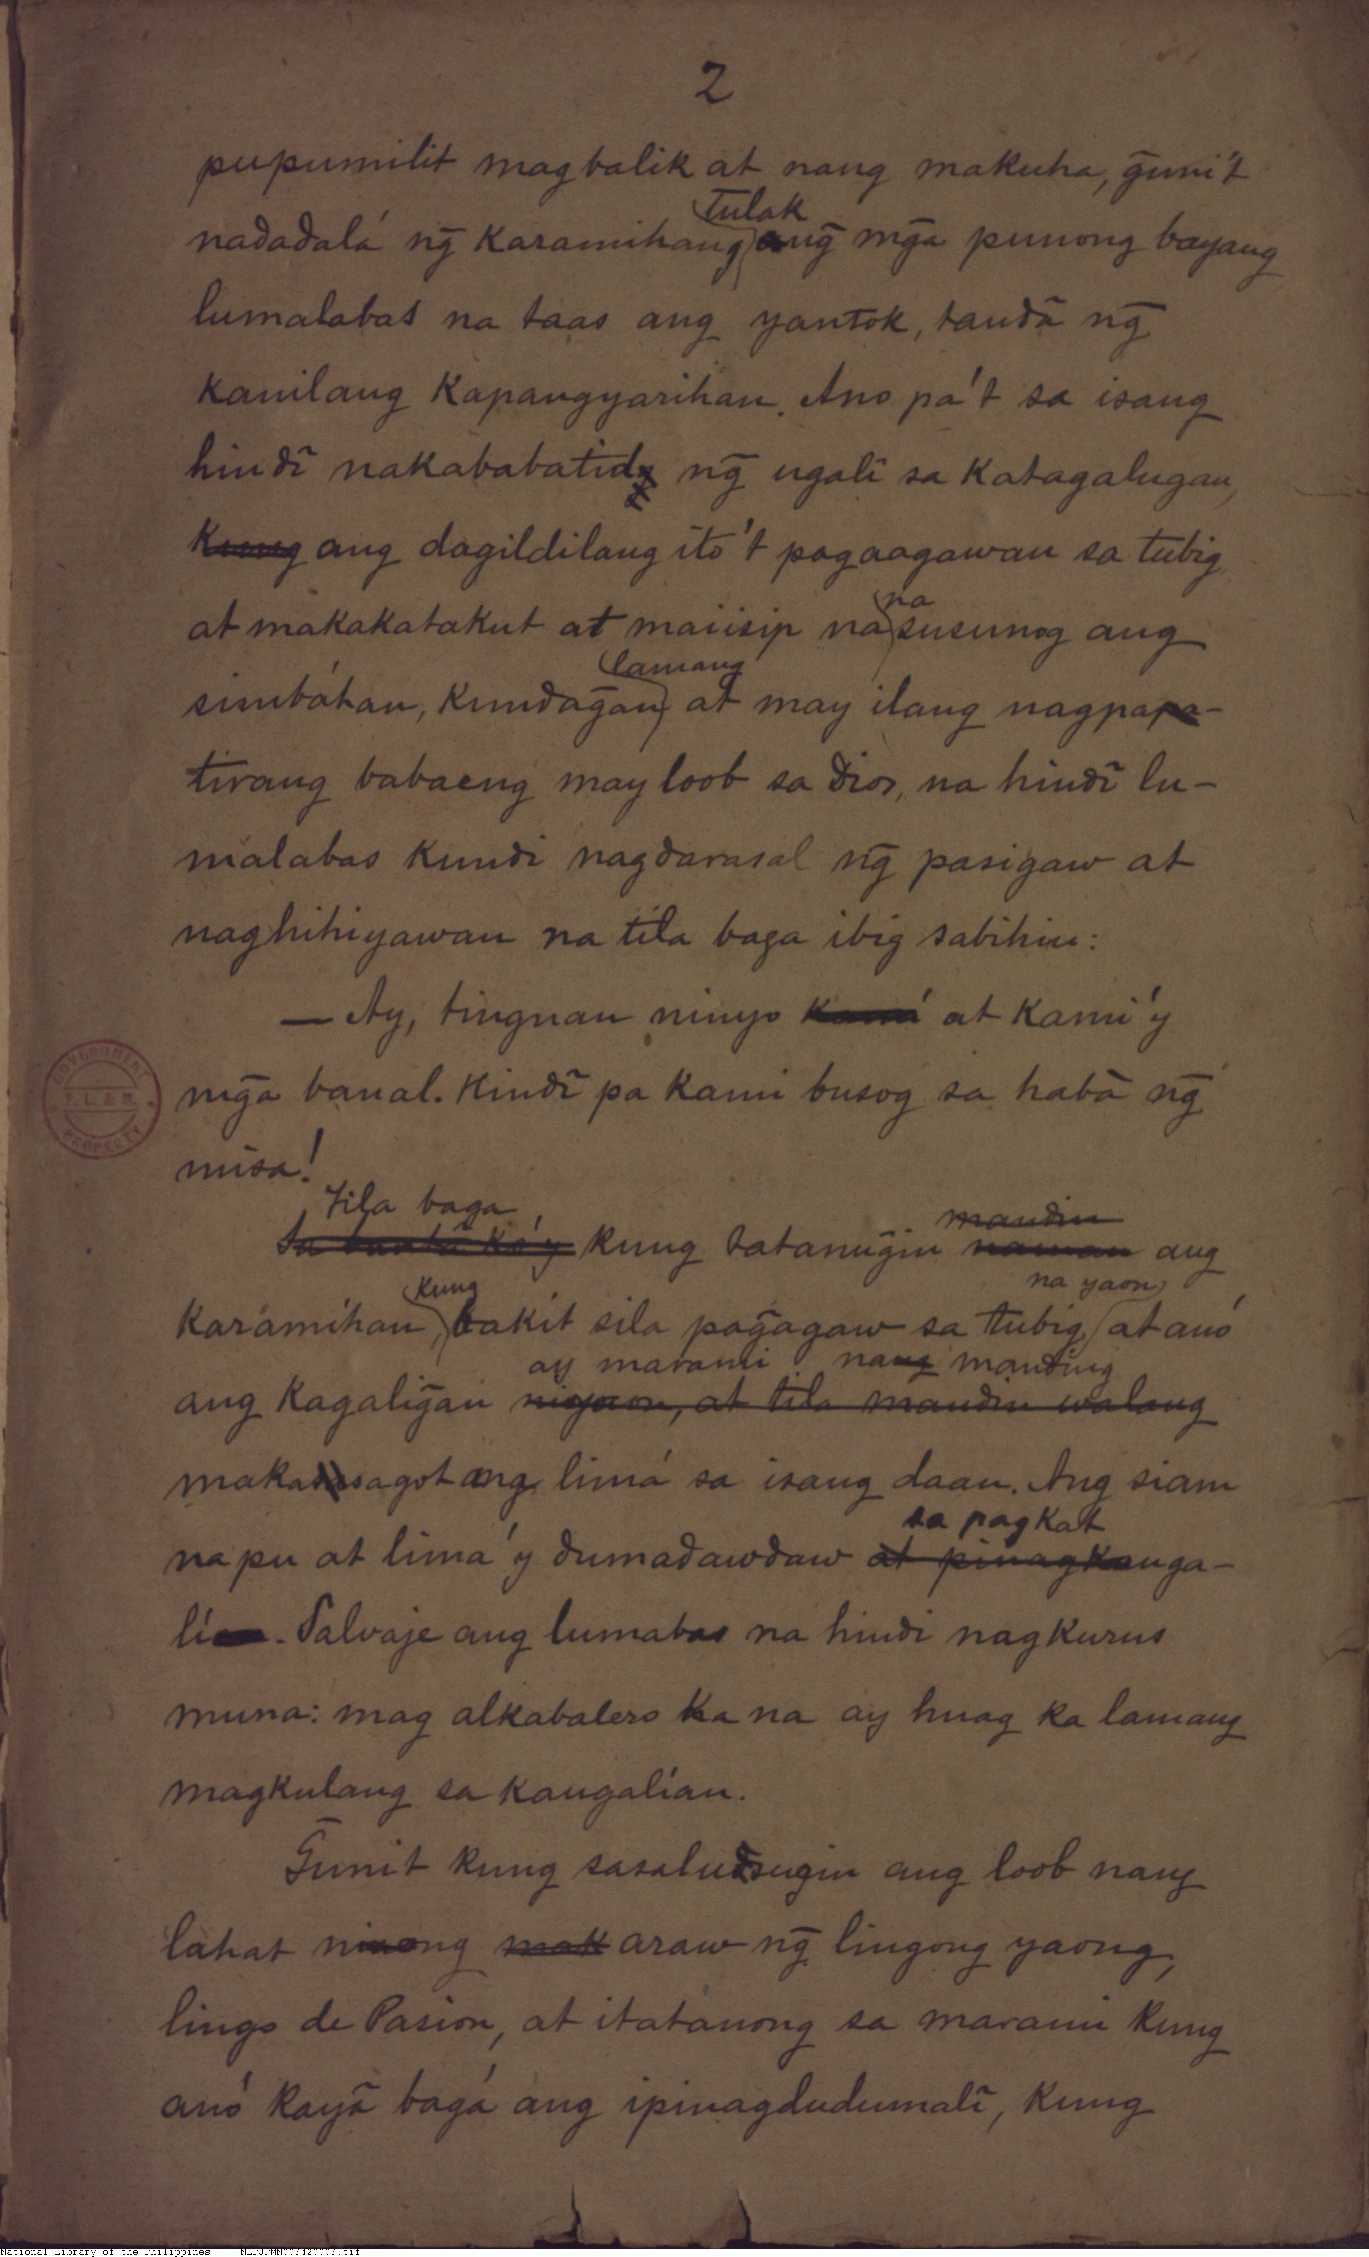 2
pupumilit magbalik at nang makuha, g̃uni't
tulak
nadadalá ng̃ karamihang ang̃ mg̃a punong bayang
lumalabas na taas ang yantok, tandã ng̃
kanilang kapangyarihan. Ano pa't sa isang
hindĩ nakababatid ng̃ ugalĩ sa Katagalugan,
kung ang dagildilang ito't pagaagawan sa tubig
na
at makakatakut at maiisip na susunog ang
lamang
simbáhan, kundag̃an at may ilang nagpapa-
tirang babaeng may loob sa Dios, na hindĩ lu-
malabas kundi nagdarasal ng̃ pasigaw at
naghihiyawan na tila baga ibig sabihin:
— Ay, tingnan ninyo kamí at kami'y
mg̃a banal. Hindĩ pa kami busog sa habã ng̃
misa!
tila baga
mandin
Sa bantã ko'y kung tatanung̃in naman ang
kung
na yaon
karámihan bakit sila pag̃agaw sa tubig at anó
ay marami nang manding
ang kagalig̃an niyaon, at tila mandin walang
makasagot ang limá sa isang daan. Ang siam
sa pagkat
na pu at lima'y dumadawdaw at pinagkauga-
lí. Salvaje ang lumabas na hindi nagkurus
muna: mag alkabalero ka na ay huag ka lamang
magkulang sa kaugalían.
G̃unit kung sasaludsugin ang loob nang
lahat niyong mak araw ng̃ lingong yaong,
lingo de Pasion, at itatanong sa marami kung
anó kayã bagá ang ipinagdudumalĩ, kung
GOVERNMENT
P. L. & M.
PROPERTY
National Library of the Philippines